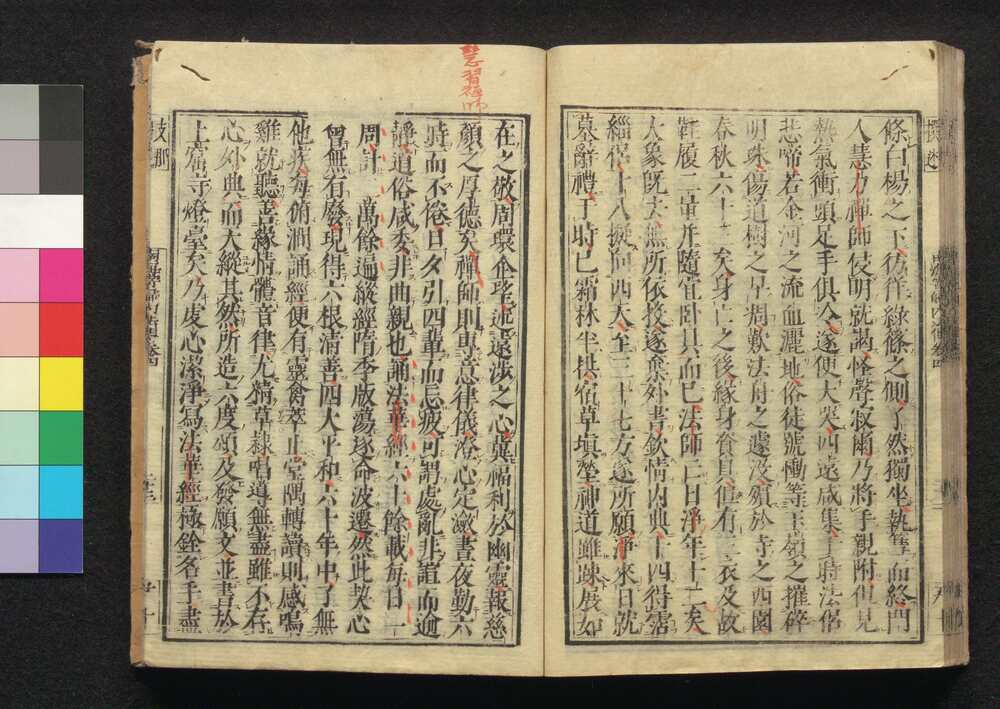 條白楊之下彷徉綠篠之側了然獨坐執筆而終門
人慧力禪師使明就謁怪聲寂爾乃將手親附但見
熱氣衝頭足手俱冷遂便大哭四遠咸集于時法侶
悲啼若金河之流血灑地俗徒號慟等玉嶺之摧碎
明珠傷道樹之早凋歎法舟之遽沒殯於寺之西園
春秋六十三矣身亡之後緣身資具但有三衣及故
鞋履二量并隨宜臥具而已法師亡日淨年十二矣
大象既去無所依投遂棄外書欽情內典十四得霑
緇侶十八擬向西天至三十七方遂所願淨來日就
墓辭禮于時已霜林半拱宿草填塋神道雖疎展如
慧習禪師
在之敬周環企望述遠涉之心冀福利於幽靈報慈
顏之厚德矣禪師則專意律儀澄心定瀲晝夜勤六
時而不倦旦夕引四輩而忘疲可謂處亂非諠而逾
靜道俗咸委非曲親也誦法華經六十餘載每日一
周計二萬餘遍縱經隋季版蕩逐命波遷然此契心
曾無有廢現得六根清善四大平和六十年中了無
他疾每俯澗誦經便有靈禽萃止堂隅轉讀則感鳴
雞就聽善緣情體音律尤精草隸唱導無盡雖不存
心外典而天縱其然所造六度頌及發願文並書於
土窟寺燈臺矣乃虔心潔淨寫法華經極銓名手盡
支那